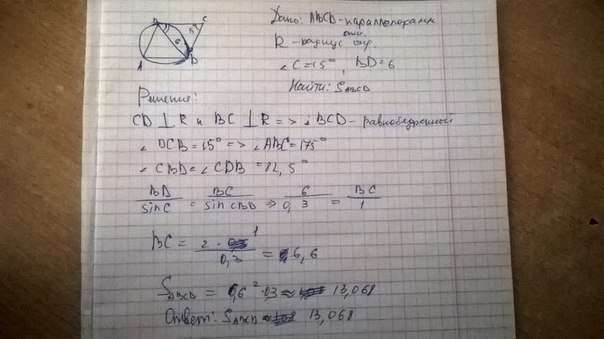 Дано: ABCD - параллелограмм
R - радиус опис. окр.
∠C=15°, BD=6
Найти: S ABCD
Решение:
CD ⊥ R и BC ⊥ R => ∠BCD - равнобедренный
∠DCB=15° => ∠ABC=175°
∠CBD=∠CDB=82,5°
BD/sinC = BC/sin CBD => 6/0,3 = BC/1
BC = 2·1/0,3 = 6,6
S ABCD = 6,6²·0,3 ≈ 13,068
Ответ: S ABCD 13,068